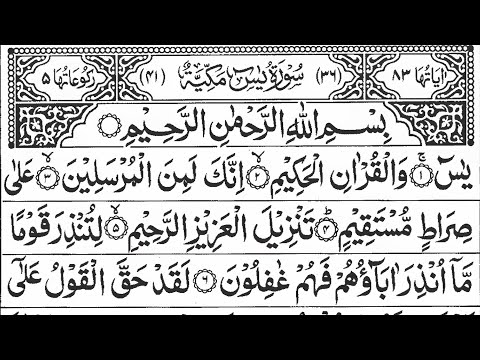 اٰیَاتُهَا ٨٣ (٣٦) سُوْرَةُ یٰسٓ مَكِّیَّةٌ (٤١) رُكُوْعَاتُهَا ٥
بِسْمِ اللّٰهِ الرَّحْمٰنِ الرَّحِیْمِ
یٰسٓ ۚ﴿۱﴾ وَالْقُرْاٰنِ الْحَكِیْمِ ۙ﴿۲﴾ اِنَّكَ لَمِنَ الْمُرْسَلِیْنَ ۙ﴿۳﴾ عَلٰی
صِرَاطٍ مُّسْتَقِیْمٍ ؕ﴿۴﴾ تَنْزِیْلَ الْعَزِیْزِ الرَّحِیْمِ ۙ﴿۵﴾ لِتُنْذِرَ قَوْمًا
مَّاۤ اُنْذِرَ اٰبَآؤُهُمْ فَهُمْ غٰفِلُوْنَ ﴿۶﴾ لَقَدْ حَقَّ الْقَوْلُ عَلٰۤی